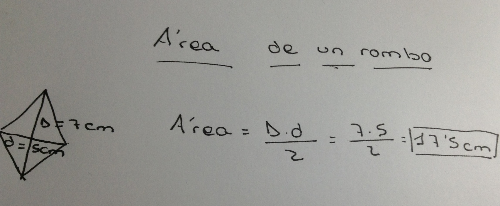 Área de un rombo
D = 7cm
d = 5cm
Área = D.d / 2 = 7.5 / 2 = 17'5cm